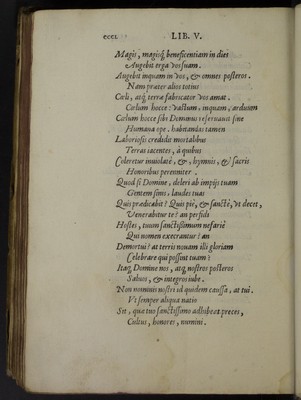 LIB. V.
Magis, magisq́; beneficentiam in diei
Augebit erga vos suam.
Augebit inquam in vos, &, omnes posteros.
Nam præter alios totius
Cœli, atq́; terræ fabricator vos amat.
Cœlum hocce: vastum, inquam, arduum
Cœlum hocce sibi Dominus reseruauit sine
Humana ope. habitandas tamen
Laboriosis credidit mortalibus
Terras iacentes, à quibus
Coleretur inuiolatè, &, hymnis, & sacris
Honoribus perenniter.
Quod si Domine, deleri ab impijs tuam
Gentem sinis, laudes tuas
Quis prædicabit? Quis piè, & sanctè, vt decet,
Venerabitur te? an perfidi
Hostes, tuum sanctissimum nefariè
Qui nomen execrantur? an
Demortui? at terris nouam illi gloriam
Celebrare qui possint tuam?
Itaq́; Domine nos, atq́; nostros posteros
Saluos, & integros iube.
Non nominis nostri id quidem caussa, at tui.
Vt semper aliqua natio
Sit, quæ tuo sanctissimo adhibeat preces,
Cultus, honores, numini.